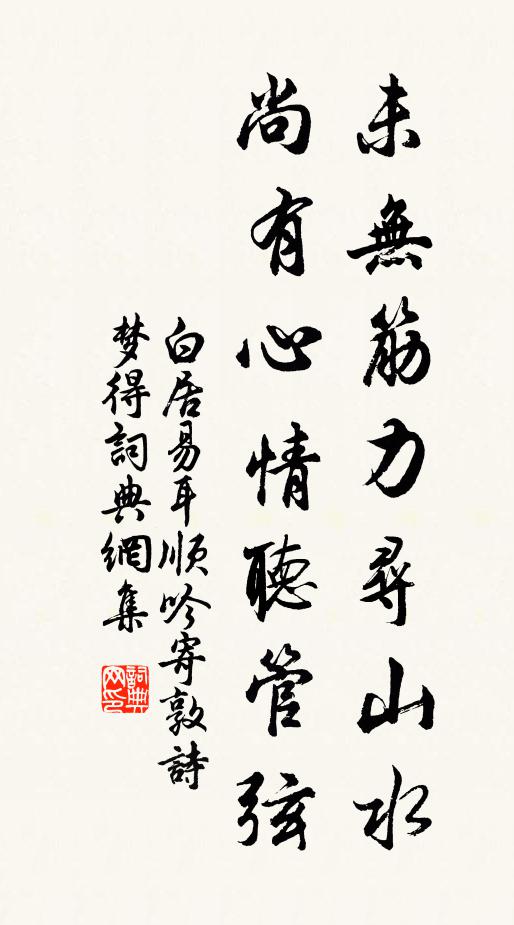 未無筋力尋山水
尚有心情聽管弦
白居易耳順吟寄敦詩
梦得詞典網集
詞典
网印